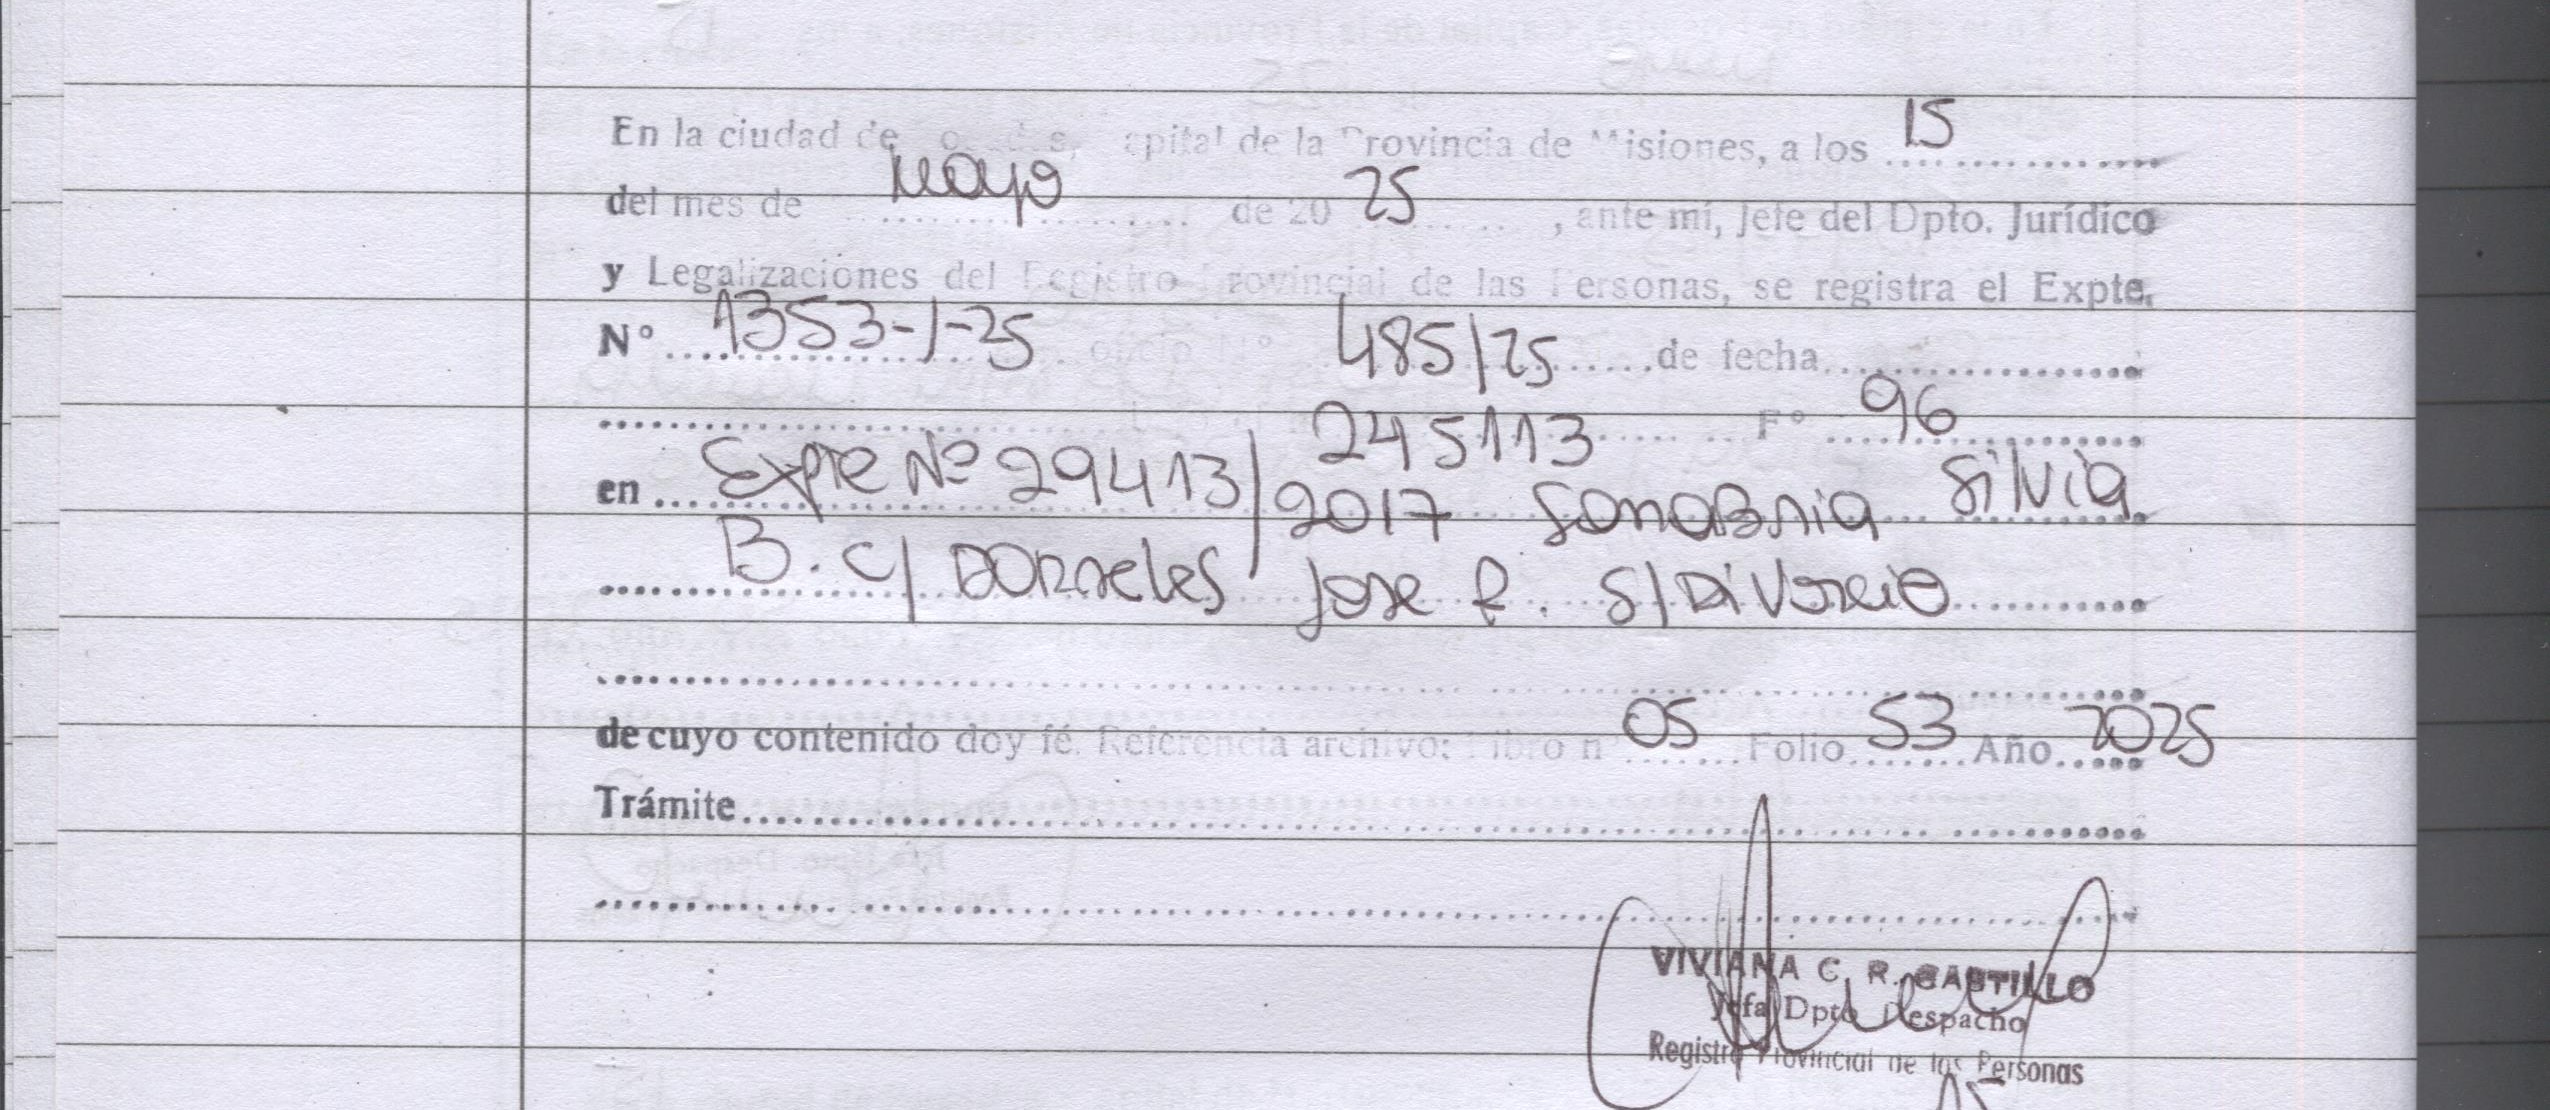 En la ciudad de Posadas, Capital de la Provincia de Misiones, a los 15
del mes de mayo de 2025, ante mí, Jefe del Dpto. Jurídico
y Legalizaciones del Registro Provincial de las Personas, se registra el Expte.
N° 1353-1-25 oficio N° 485/25 de fecha
245113 F° 96
en Expte Nº 29413/2017 Sanabria Silvia
B. c/ Dorneles Jose R. S/ Divorcio
de cuyo contenido doy fé. Referencia archivo: Libro n° 05 Folio 53 Año 2025
Trámite
VIVIANA C. R. CASTILLO
Jefa Dpto Despacho
Registro Provincial de las Personas